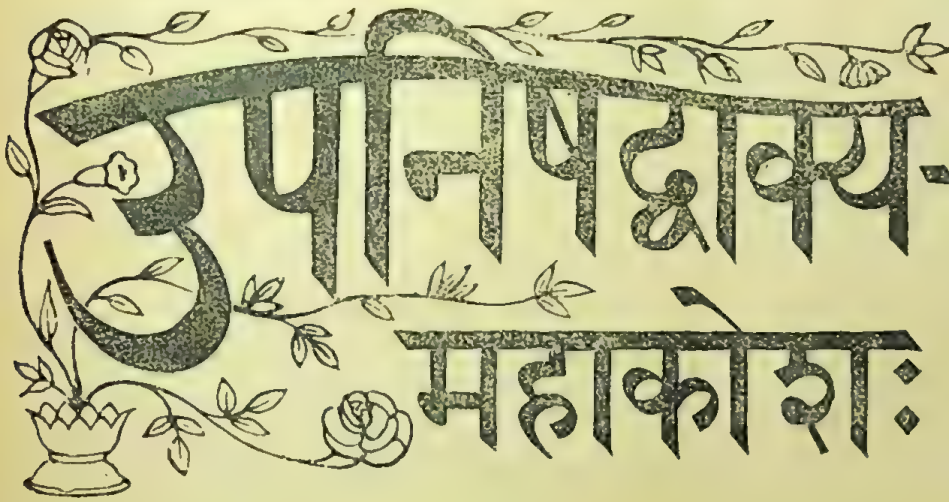 उपनिषद्वाक्य-
महाकोशः